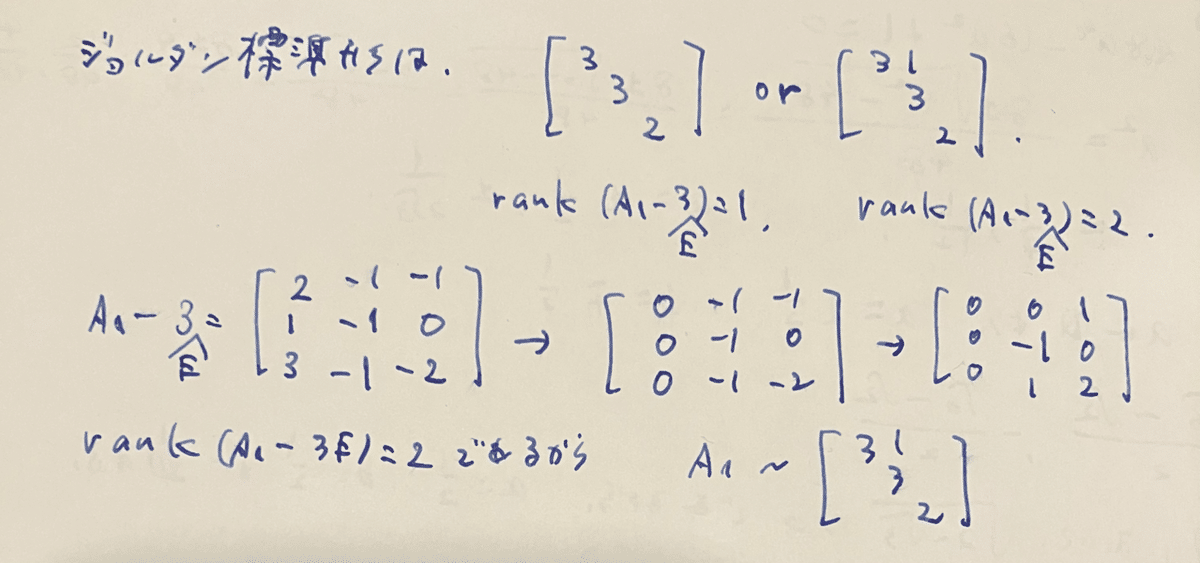 ジョルダン標準形は. [3 3 2] or [3 1 3 2].
rank (A₁-3E)=1, rank (A₁-3E)=2.
A₁-3E = [2 -1 -1 1 -1 0 3 -1 -2] → [0 -1 -1 0 -1 0 0 -1 -2] → [0 0 1 0 -1 0 0 1 2]
rank (A₁-3E)=2 であるから A₁ ~ [3 1 3 2]